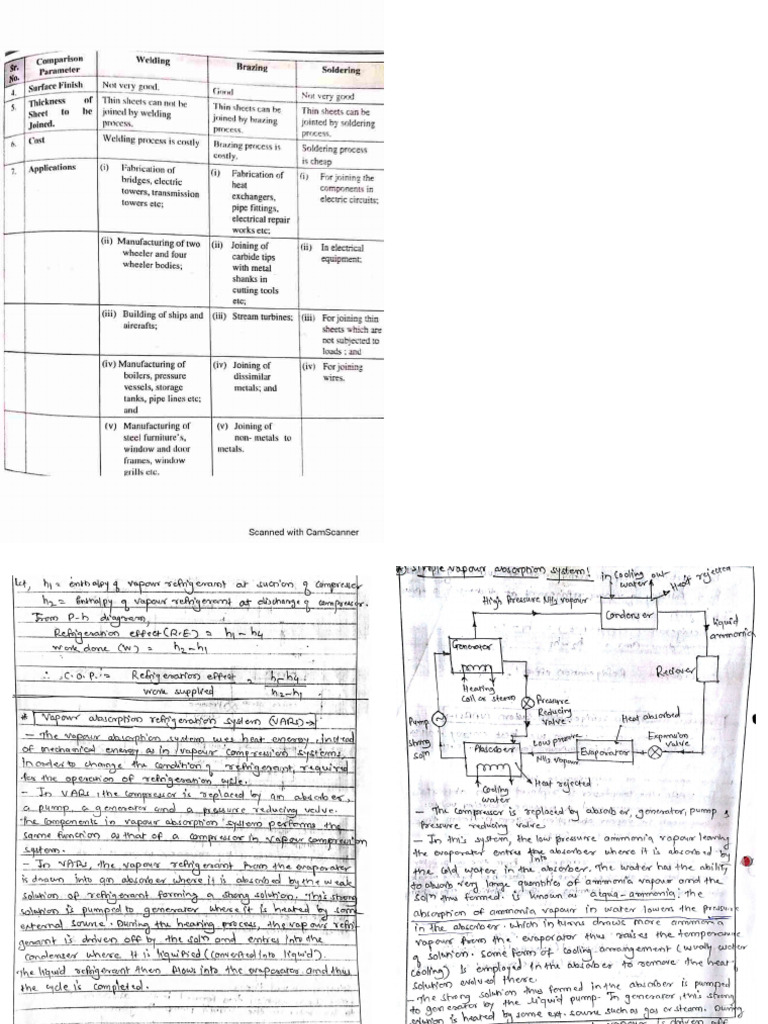 Sr. No. Comparison Parameter Welding Brazing Soldering
4. Surface Finish Not very good. Good Not very good
5. Thickness of Sheet to be Joined. Thin sheets can not be joined by welding process. Thin sheets can be joined by brazing process. Thin sheets can be jointed by soldering process.
6. Cost Welding process is costly Brazing process is costly. Soldering process is cheap
7. Applications (i) Fabrication of bridges, electric towers, transmission towers etc; (i) Fabrication of heat exchangers, pipe fittings, electrical repair works etc; (i) For joining the components in electric circuits;
(ii) Manufacturing of two wheeler and four wheeler bodies; (ii) Joining of carbide tips with metal shanks in cutting tools etc; (ii) In electrical equipment;
(iii) Building of ships and aircrafts; (iii) Stream turbines; (iii) For joining thin sheets which are not subjected to loads ; and
(iv) Manufacturing of boilers, pressure vessels, storage tanks, pipe lines etc; and (iv) Joining of dissimilar metals; and (iv) For joining wires.
(v) Manufacturing of steel furniture's, window and door frames, window grills etc. (v) Joining of non- metals to metals.
Scanned with CamScanner
Let, h1 = enthalpy of vapour refrigerant at suction of compressor
h2 = Enthalpy of vapour refrigerant at discharge of compressor.
From P-h diagram,
Refrigeration effect (R.E) = h1 - h4
work done (W) = h2 - h1
∴ C.O.P. = Refrigeration effect / work supplied = h1-h4 / h2-h1
* Vapour absorption refrigeration system (VARS) →
- The vapour absorption system uses heat energy, instead
of mechanical energy as in vapour compression systems,
in order to change the condition of refrigerant, required
for the operation of refrigeration cycle.
- In VARS the compressor is replaced by an absorber,
a pump, a generator and a pressure reducing valve.
The components in vapour absorption system performs the
same function as that of a compressor in vapour compression
system.
- In VARS, the vapour refrigerant from the evaporator
is drawn into an absorber where it is absorbed by the weak
solution of refrigerant forming a strong solution. This strong
solution is pumped to generator where it is heated by some
external source. During the heating process, the vapour refri-
gerant is driven off by the soln and entres into the
condenser where it is liquified (converted into liquid).
The liquid refrigerant then flows into the evaporator and thus
the cycle is completed.
simple vapour absorption system!
in cooling out
water
Heat rejected
High Pressure NH3 vapour
Condenser
liquid
ammonia
Generator
Reciever
Heating
Coil or steam
Pressure
Reducing
valve.
Pump
Heat absorbed
strong
soln
Absorber
Low pressure
NH3 vapour
Evaporator
Expansion
valve
Heat rejected
Cooling
water
- The compressor is replaced by absorber, generator, pump &
Pressure reducing valve.
- In this system, the low pressure ammonia vapour leaving
the evaporator entres into the absorber where it is absorbed by
the cold water in the absorber. The water has the ability
to absorb very large quantities of ammonia vapour and the
soln thus formed is known as "acqua-ammonia". The
absorption of ammonia vapour in water lowers the pressure
in the absorber which in turns draws more ammonia
vapour from the evaporator thus raises the temperature
of solution. Some form of cooling arrangement (usually water
cooling) is employed in the absorber to remove the heat
solution evolved there.
- The strong solution thus formed in the absorber is pumped
to generator by the liquid pump. In generator, this strong
solution is heated by some ext. source such as gas or steam. During